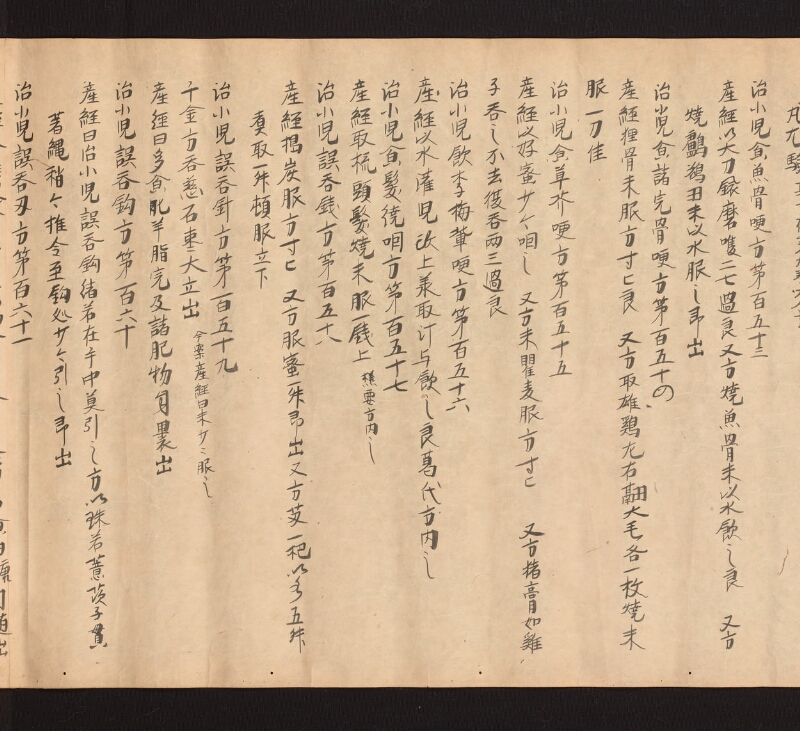 治小児食魚骨哽方第百五十三
産経以大刀鐶磨喉二七過良又方焼魚骨末以水飲之良 又方
焼鸕鷀羽末以水服之即出
治小児食諸完骨哽方第百五十四
産経狸骨末服方寸匕良 又方取雄鶏左右翮大毛各一枚焼末
服一刀佳
治小児食草芥哽方第百五十五
産経以好蜜少々咽之 又方末瞿麦服方寸匕 又方猪膏如雞
子呑之不去復呑両三過良
治小児飲李梅輩哽方第百五十六
産経以水灌児頭上承取汁与飲之良葛代方内之
治小児食髪繞咽方第百五十七
産経取梳頭髪焼末服一銭上 極要方内之
治小児誤呑銭方第百五十八
産経搗炭服方寸匕 又方服蜜一升即出又方艾一把以水五升
煮取一升頓服立下
治小児誤呑針方第百五十九
千金方呑慈石棗大立出 今案産経曰末少々服之
産経曰多食肥羊脂完及諸肥物自裹出
治小児誤呑鈎方第百六十
産経曰治小児誤呑鈎緒若在手中莫引之方以珠若薏苡子貫
著縄稍々推令至鈎処少々引之即出
治小児誤呑刃方第百六十一